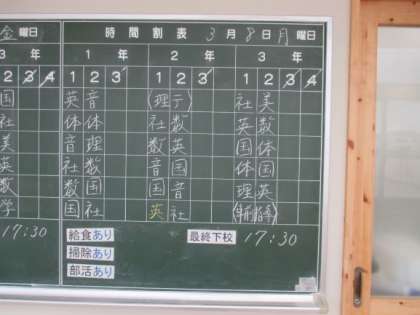 金 曜日
3 年
2 3 4
国
体
美
英
数
学
17:30
時間割表 3月8日月曜日
1 年 2 年 3 年
1 2 3 1 2 3 1 2 3 4
英 音 (理テ) 社 美
体 体 社 数 英 数
音 理 数 英 国 体
社 数 音 国 体 国
数 国 国 音 理 英
国 社 英 社
給食あり 最終下校 17:30
掃除あり
部活あり